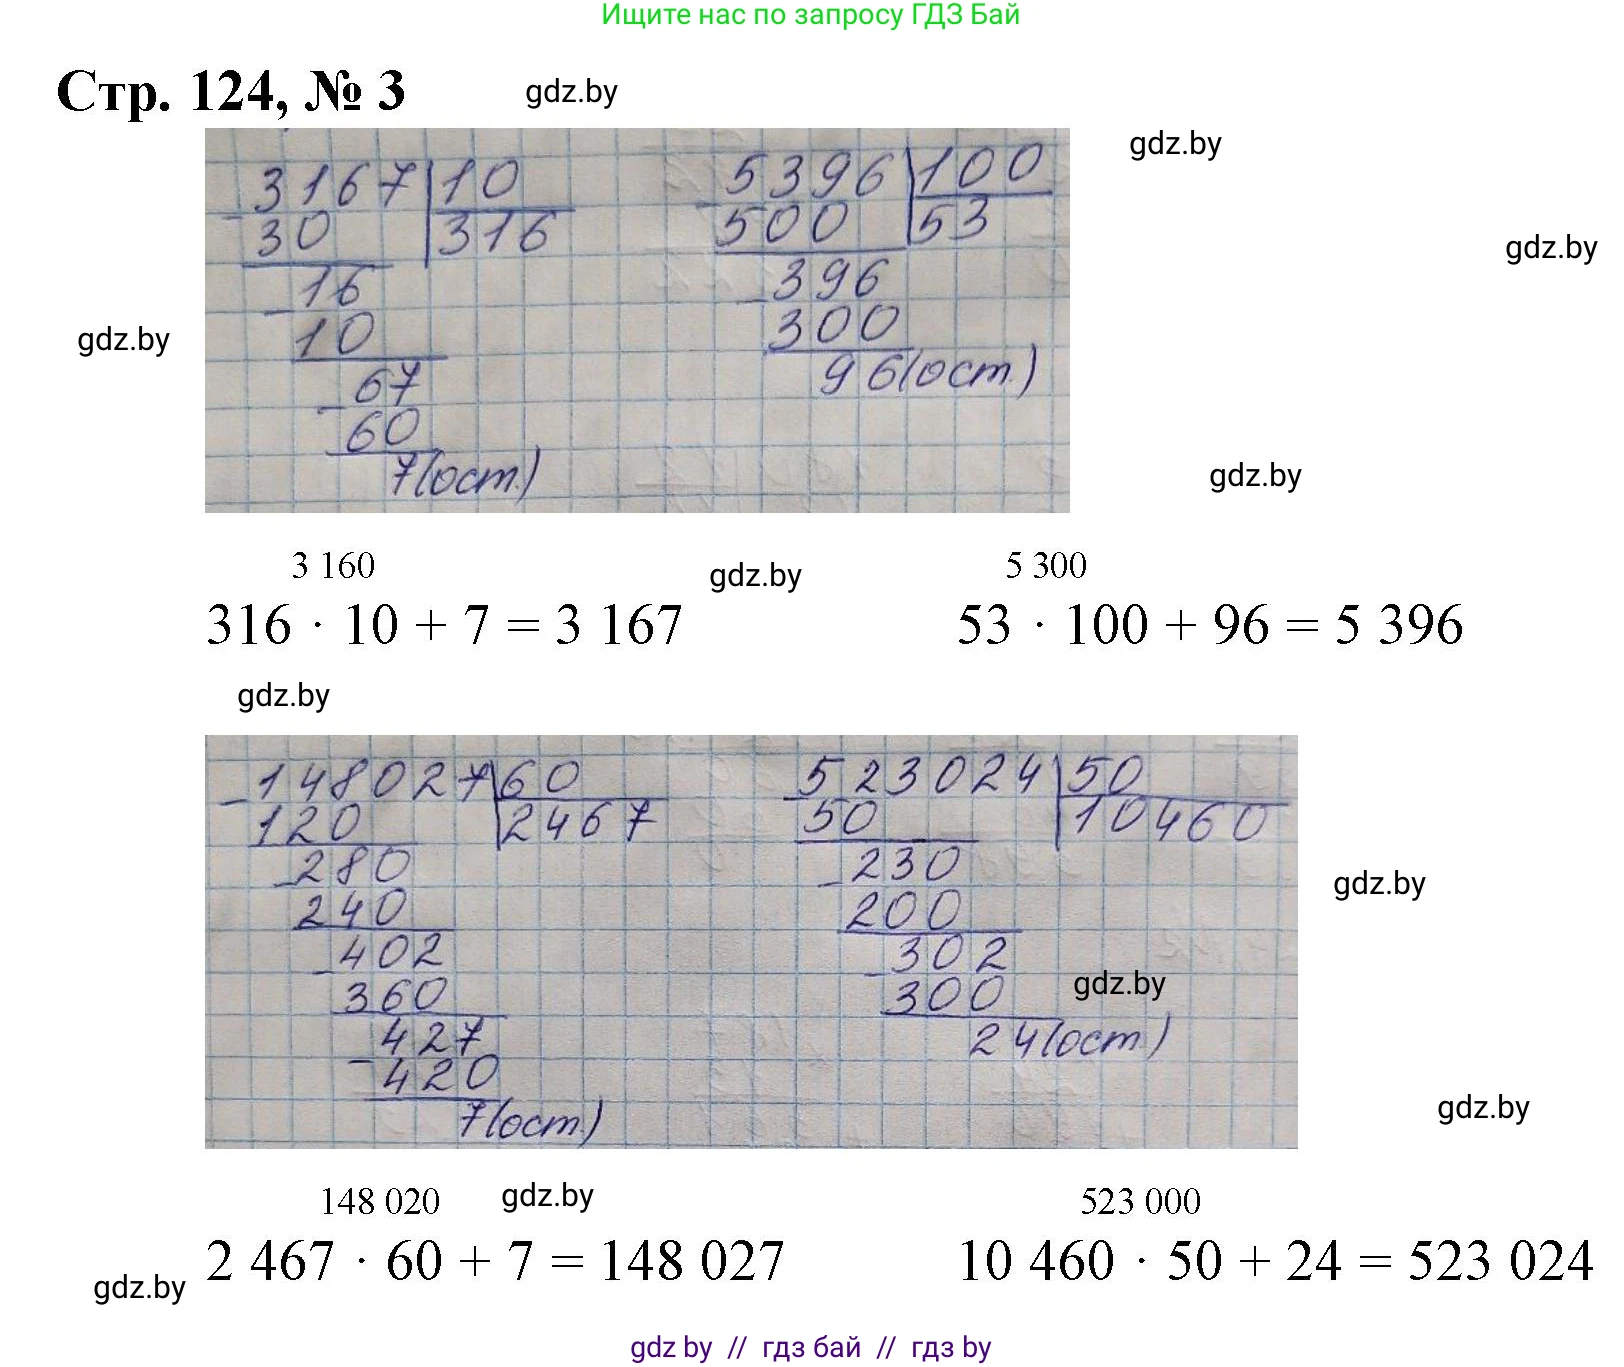 Ищите нас по запросу ГДЗ Бай
Стр. 124, № 3
gdz.by
gdz.by
3167 10
30 316
16
10
67
60
7(ост.)
5396 100
500 53
396
300
96(ост.)
gdz.by
gdz.by
gdz.by
3 160
316 · 10 + 7 = 3 167
gdz.by
5 300
53 · 100 + 96 = 5 396
gdz.by
148027 60
120 2467
280
240
402
360
427
420
7(ост.)
523024 50
50 10460
230
200
302
300
24(ост.)
gdz.by
gdz.by
gdz.by
148 020
gdz.by
2 467 · 60 + 7 = 148 027
523 000
10 460 · 50 + 24 = 523 024
gdz.by
gdz by // гдз бай // гдз by